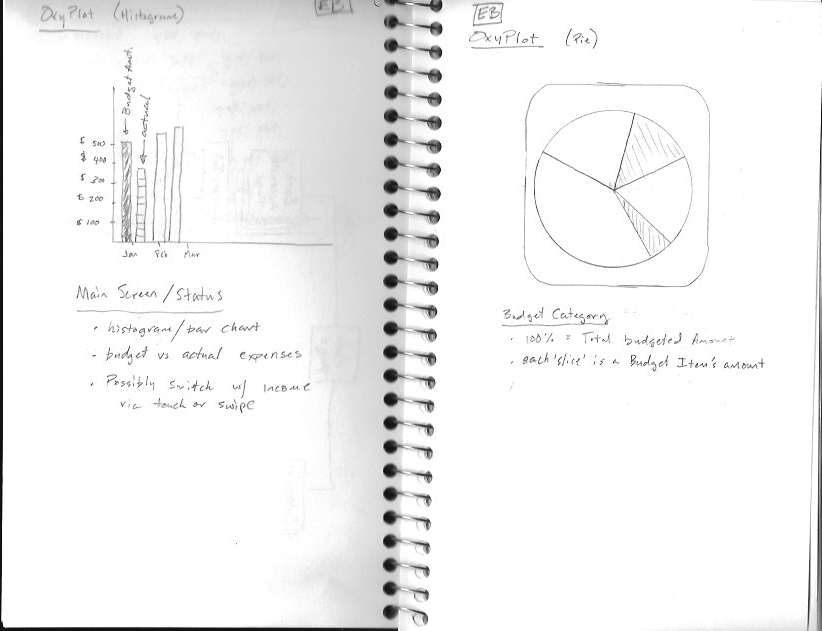 OxyPlot (Histogram)
EB
Budget Amt.
actual
$ 500
$ 400
$ 300
$ 200
$ 100
Jan Feb Mar
Main Screen/Status
• histogram/bar chart
• budget vs actual expenses
• Possibly switch w/ income
via touch or swipe
EB
OxyPlot (Pie)
Budget Category
• 100% = Total budgeted Amount
• each 'slice' is a Budget Item's amount